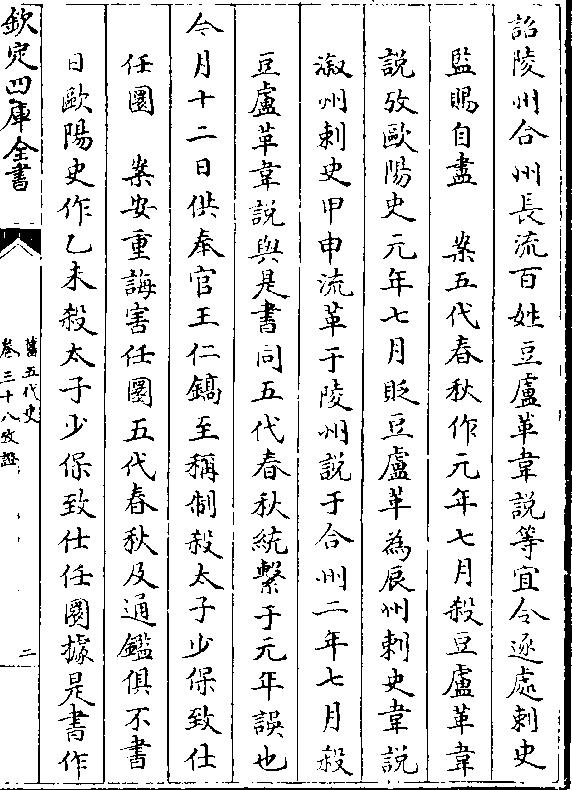 詔陵州合州長流百姓豆盧革韋說等宜令逐處刺史
監賜自盡　案五代春秋作元年七月殺豆盧革韋
說攷歐陽史元年七月貶豆盧革為辰州刺史韋說
溆州刺史甲申流革于陵州說于合州二年七月殺
豆盧革韋說與是書同五代春秋統繫于元年誤也
今月十二日供奉官王仁鎬至稱制殺太子少保致仕
任圜　案安重誨害任圜五代春秋及通鑑俱不書
日歐陽史作乙未殺太子少保致仕任圜據是書作
欽定四庫全書
舊五代史
卷三十八攷證
二